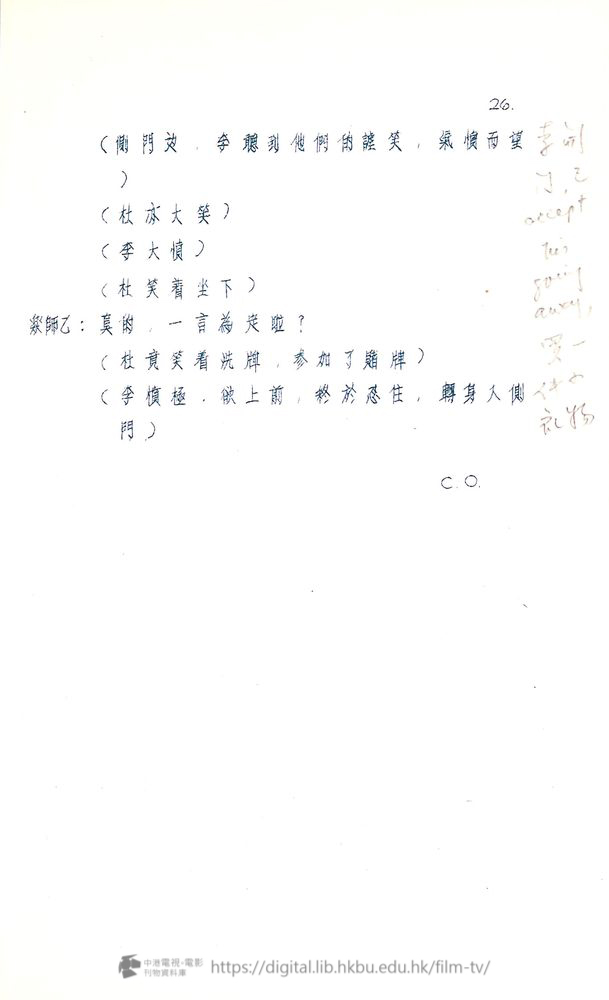 26.
（側門边，李聽到他們的謔笑，氣憤而望
）
（杜亦大笑）
（李大憤）
（杜笑着坐下）
繁師乙：真的，一言為定啦？
（杜竟笑着洗牌，参加了賭牌）
（李憤極，欲上前，終於忍住，轉身入側
門）
C.O.
李
已
accept
his
going
away,
買一
件小
礼物
中港電視·電影
刊物資料庫
https://digital.lib.hkbu.edu.hk/film-tv/